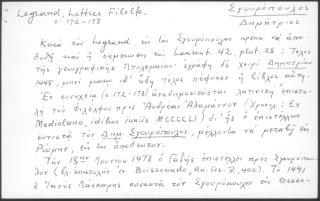 Legrand, Lettres Filelfe.
σ. 172-173
Σγουρόπουλος
Δημήτριος
Κατὰ τὸν Legrand, εἰς τὸν Σγουρόπουλον πρέπει νὰ ἀπο-
δοθῇ καὶ ἡ σημείωσις τοῦ Laurent. 42, plut. 28: Τέλος
τῆς γεωγραφικῆς Πτολεμαίου· ἐγράφη δὲ χειρὶ Δημητρίου
1445, μηνὶ
ἡ βίβλος αὕτη.
Ἐν συνεχείᾳ (σ. 172-173) ἀναδημοσιεύεται λατινικὴ ἐπιστο-
λὴ τοῦ Φιλέλφου πρὸς Ἀνδρέαν Ἀλαμάννον (Χρονολ.: Ex
Mediolano, idibus iuniis MCCCCLI) δι' ἧς ὁ ἐπιστέλλων
συνιστᾷ τὸν Δημ. Σγουρόπουλον, μέλλοντα νὰ μεταβῇ εἰς
Ρώμην,
Τὴν 18ην Ἰουνίου 1473 ὁ Γαζῆς ἐπιστέλλει πρὸς Σγουρόπου-
λον (βλ. ἐπιστολὴν ἐν Boissonade, An. Gr. V, 402). Τὸ 1491
ὁ Ἰανὸς Λάσκαρις συναντᾷ τὸν Σγουρόπουλον εἰς Θεσσα-